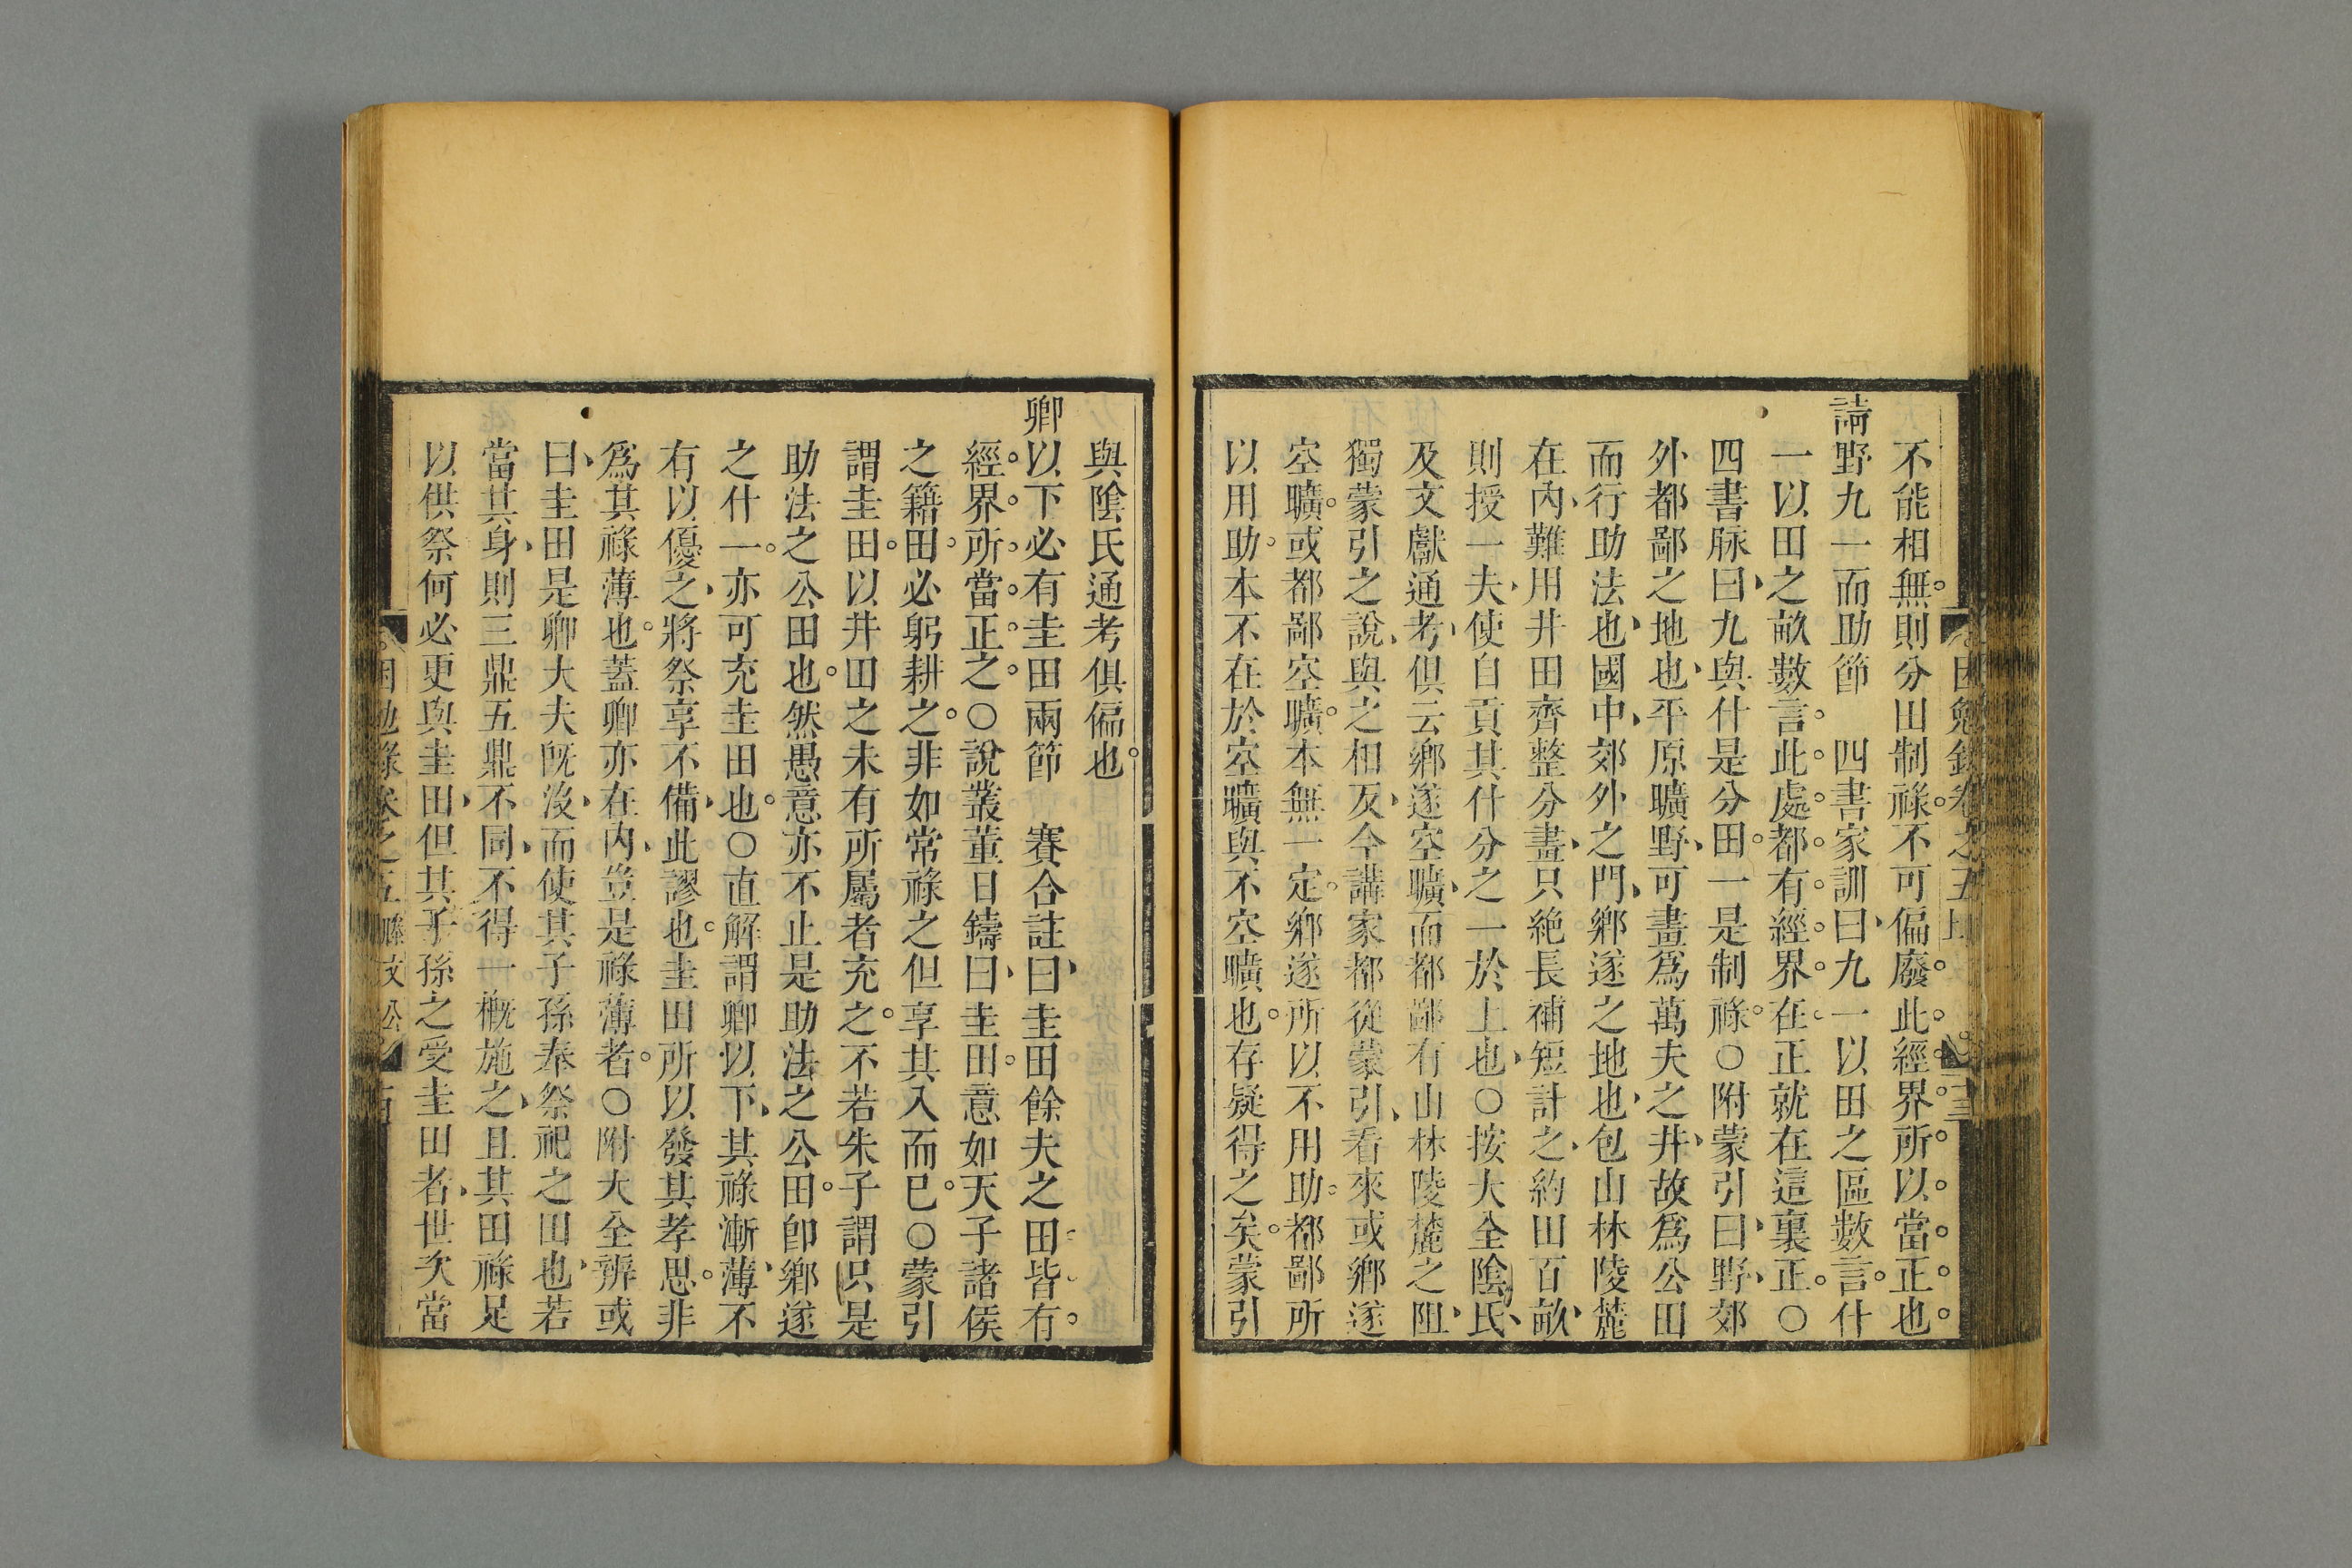 不能相無則分田制祿不可偏廢此經界所以當正也
請野九一而助節　四書家訓曰九一以田之區數言什
一以田之畝數言此處都有經界在正就在這裏正○
四書脉曰九與什是分田一是制祿○附蒙引曰野郊
外都鄙之地也平原曠野可畫爲萬夫之井故爲公田
而行助法也國中郊外之門鄉遂之地也包山林陵麓
在內難用井田齊整分畫只絶長補短計之約田百畝
則授一夫使自貢其什分之一於上也○按大全陰氏
及文獻通考俱云鄉遂空曠而都鄙有山林陵麓之阻
獨蒙引之說與之相反今講家都從蒙引看來或鄉遂
空曠或都鄙空曠本無一定鄉遂所以不用助都鄙所
以用助本不在於空曠與不空曠也存疑得之矣蒙引
與陰氏通考俱偏也
卿以下必有圭田兩節　賽合註曰圭田餘夫之田皆有
經界所當正之○說叢董日鑄曰圭田意如天子諸侯
之籍田必躬耕之非如常祿之但享其入而已○蒙引
謂圭田以井田之未有所屬者充之不若朱子謂只是
助法之公田也然愚意亦不止是助法之公田卽鄉遂
之什一亦可充圭田也○直解謂卿以下其祿漸薄不
有以優之將祭享不備此謬也圭田所以發其孝思非
爲其祿薄也蓋卿亦在內豈是祿薄者○附大全辨或
曰圭田是卿大夫旣沒而使其子孫奉祭祀之田也若
當其身則三鼎五鼎不同不得一槪施之且其田祿足
以供祭何必更與圭田但其子孫之受圭田者世次當
困勉錄卷之五 滕文公